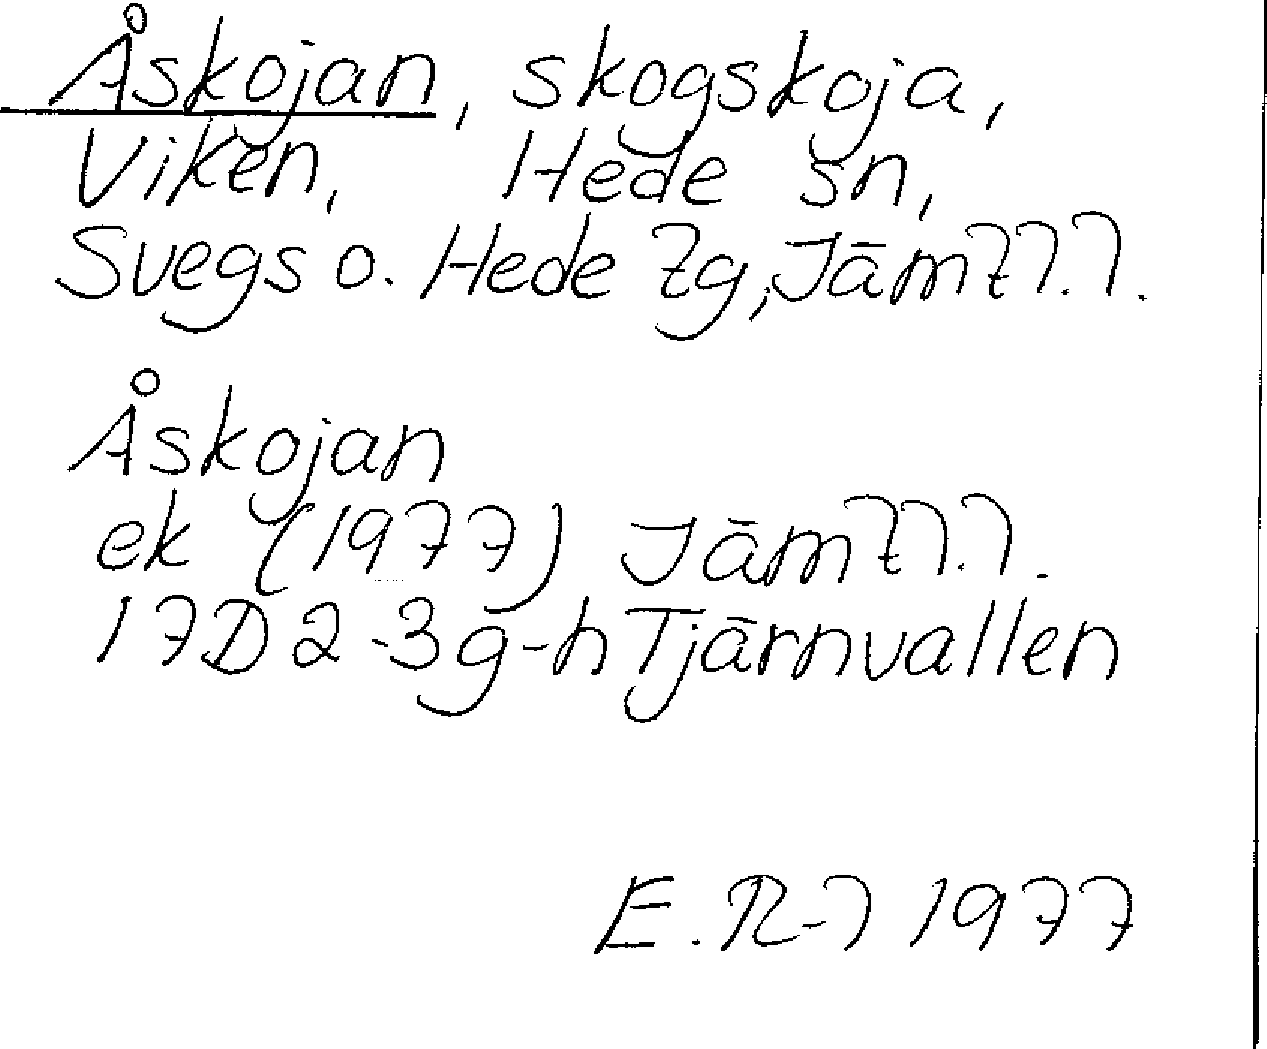 Åskojan, skogskoja,
Viken, Hede sn,
Svegs o. Hede tg, Jämtl.l.
Åskojan
ek (1977) Jämtl.l.
17D 2-3 g-h Tjärnvallen
E.R-l 1977